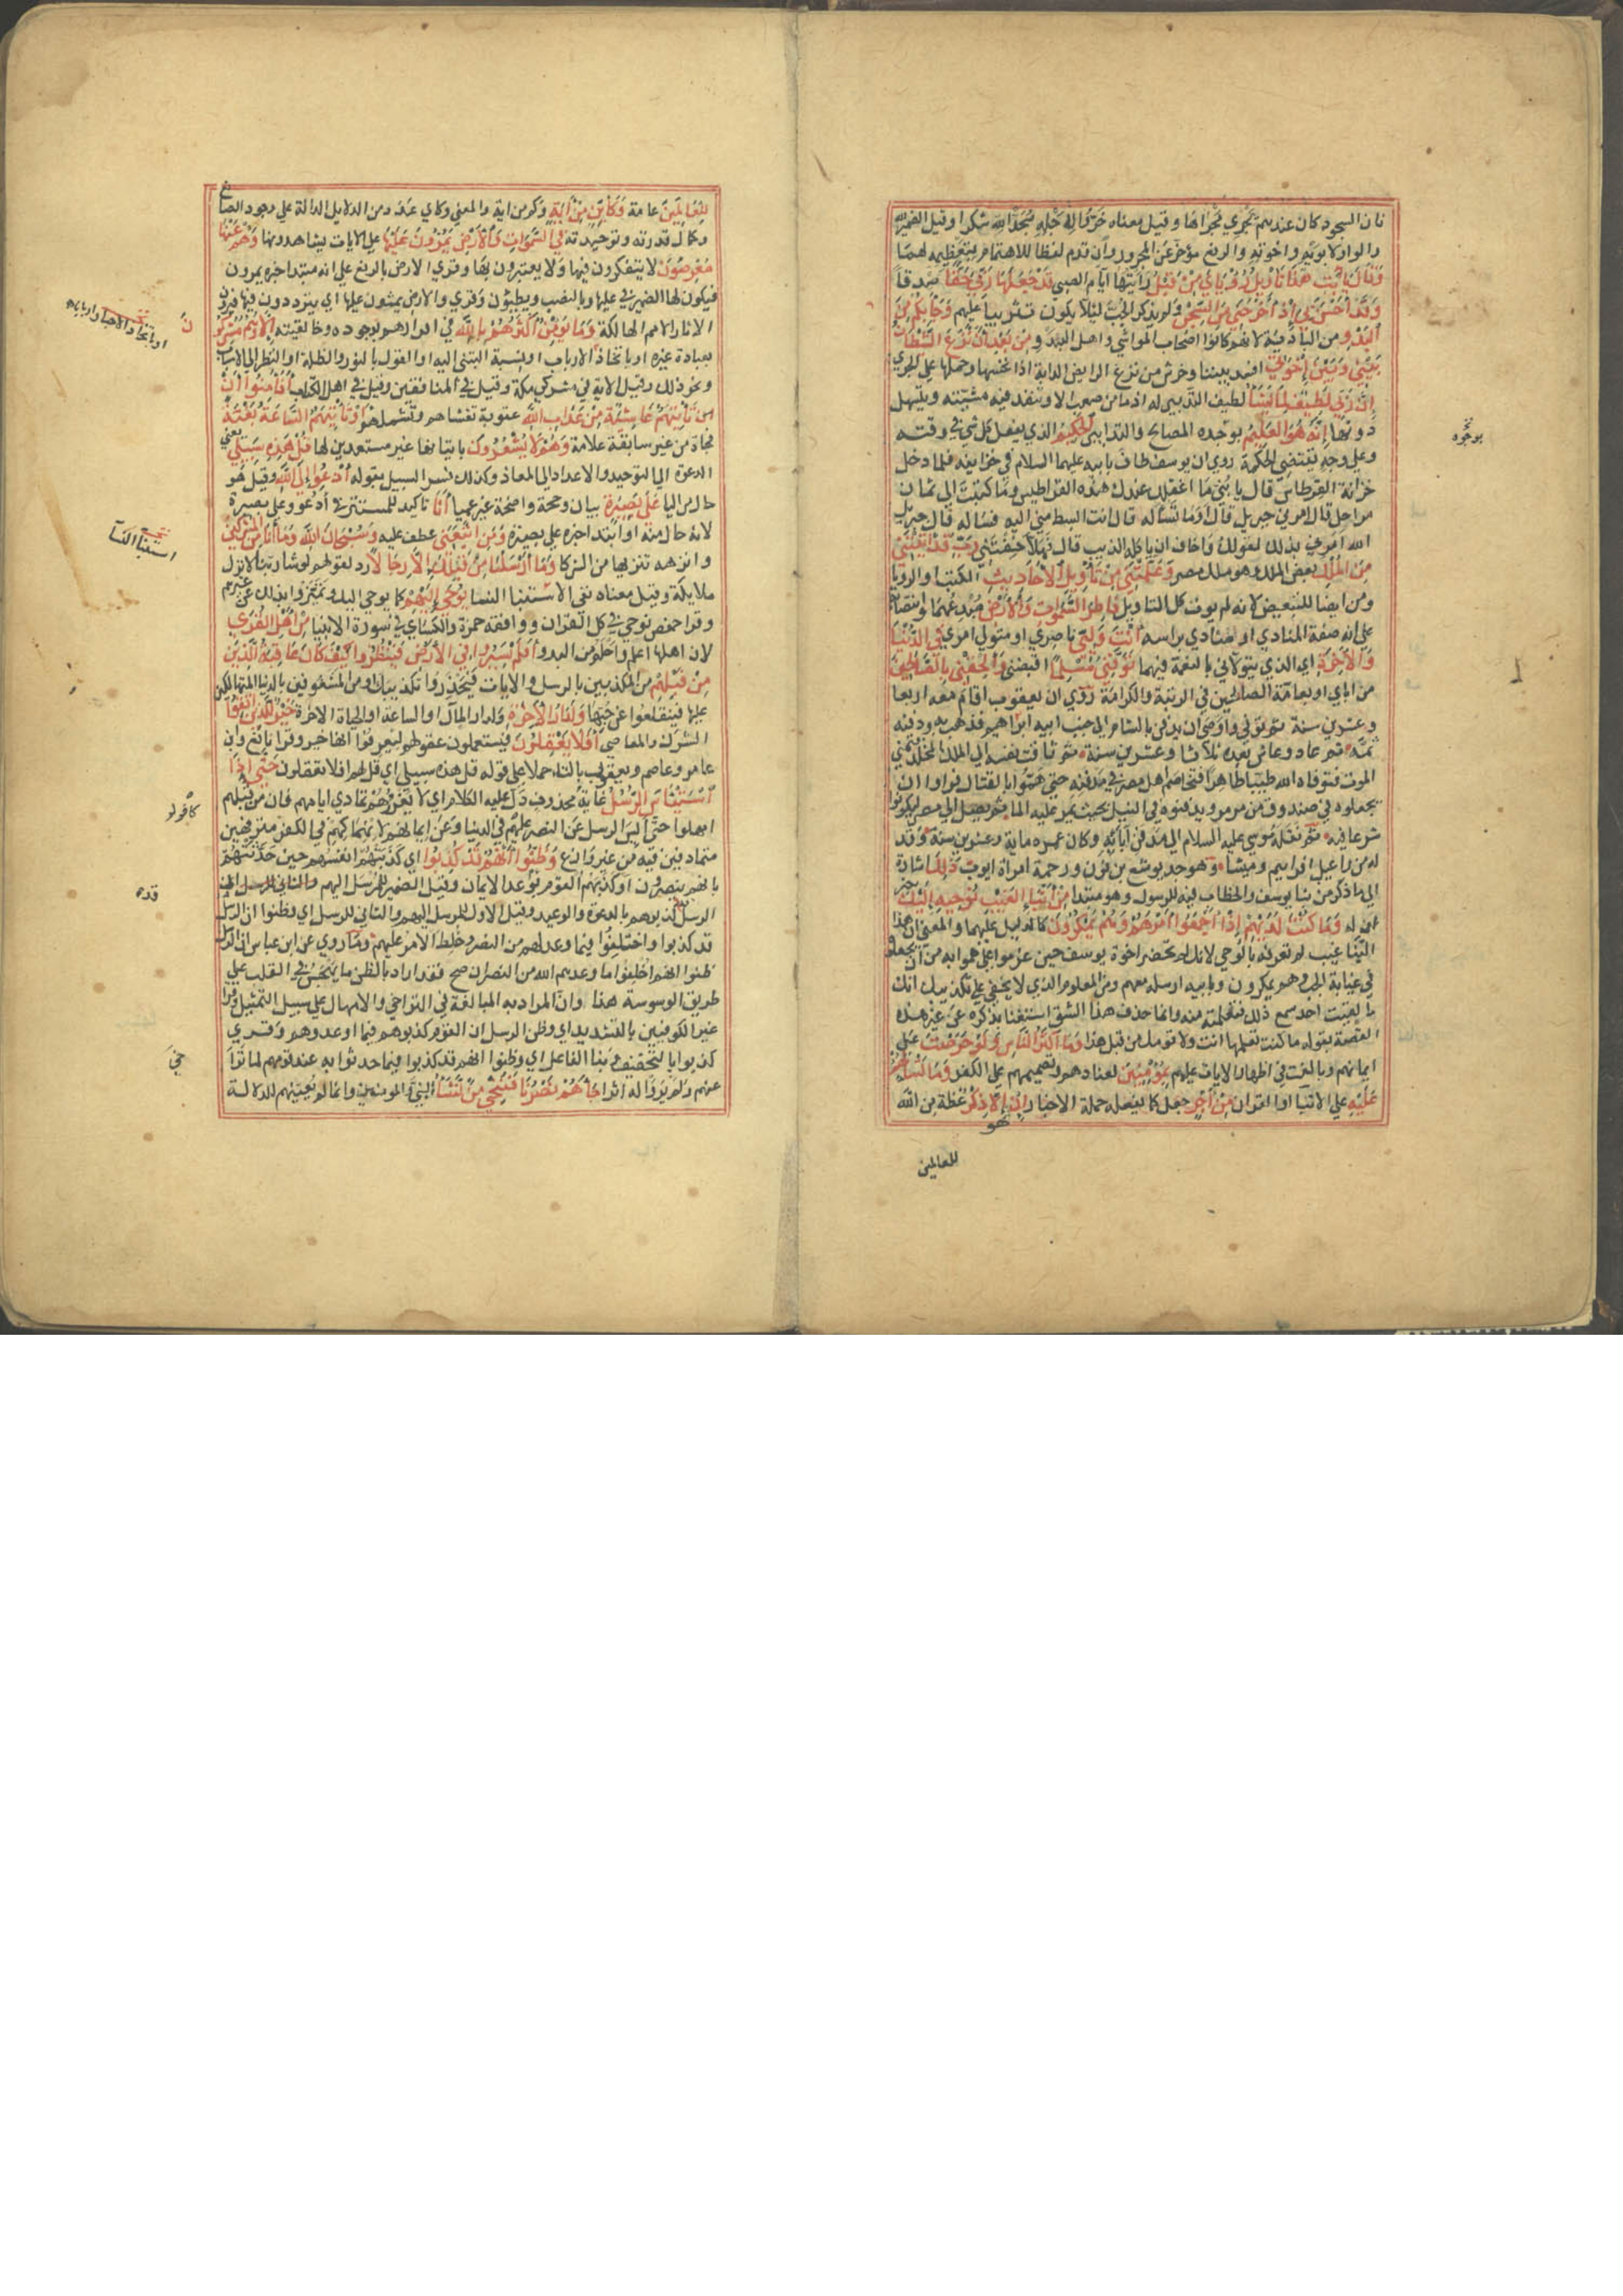 فان السجود كان عندهم يجري مجراها وقيل معناه خروا لاجله سجدا لله شكرا وقيل الضمير لله
والواو لابويه واخوته والرفع مؤخر عن الخرور وان قدم لفظا للاهتمام بتعظيمه لهما
وقال يا ابت هذا تأويل رؤياي من قبل رأيتها ايام الصبي قد جعلها ربي حقا صدقا
وقد احسن بي اذ أخرجني من السجن ولم يذكر الجب لئلا يكون تثريبا عليهم وجاء بكم من
البدو من البادية لانهم كانوا اصحاب المواشي واهل البدو من بعد ان نزغ الشيطان
بيني وبين إخوتي افسد بيننا وحرش من نزغ الرايض الدابة اذا نخسها وحملها على الجري
إن ربي لطيف لما يشا لطيف التدبير له اذ ما من صعب الا وتنفذ فيه مشيته ويتسهل
دونها إنه هو العليم بوجوه المصالح والتدابير الحكيم الذي يفعل كل شي في وقته
وعلي وجه يقتضي الحكمة روي ان يوسف طاف بابيه عليهما السلام في خزاينه فلما دخل
خزانة القرطاس قال يا بني ما اغفلك عندك هذه القراطيس وما كتبت الي ثمان
مراحل قال امرني جبريل قال او ما تساله قال انت ابسط مني اليه فساله قال جبريل
الله امرني بذلك لقولك واخاف ان ياكله الذيب قال فهلا خفتني رب قد آتيتني
من الملك بعض الملك وهو ملك مصر وعلمتني من تأويل الأحاديث الكتب او الرويا
ومن ايضا للتبعيض لانه لم يوت كل التاويل فاطر السموات والأرض مبدعهما وانتصابه
علي انه صفة المنادي او منادي براسه أنت وليي ناصري او متولي امري في الدنيا
والآخرة اي الذي يتولاني بالنعمة فيهما توفني مسلما اقبضني وألحقني بالصالحين
من اباي او بعامة الصالحين في الرتبة والكرامة روي ان يعقوب اقام معه اربعا
وعشرين سنة ثم توفي واوصى ان يدفن بالشام الي جنب ابيه ابراهيم فذهب به ودفنه
ثمة ثم عاد وعاش بعده ثلاثا وعشرين سنة ثم تاقت نفسه الي الملك المخلد فتمني
الموت فتوفاه الله طيبا طاهرا فتخاصم اهل مصر في مدفنه حتي هموا بالقتال فراوا ان
يجعلوه في صندوق من مرمر ويدفنوه في النيل بحيث يمر عليه الما ثم يصل الي مصر ليكونوا
شرعا فيه ثم نقله موسي عليه السلام الي مدفن آبايه وكان عمره ماية وعشرين سنة وقد
له من راعيل افراييم وميشا وهو جد يوشع بن نون ورحمة امراة ايوب ذلك اشارة
الي ما ذكر من نبا يوسف والخطاب فيه للرسول وهو مبتدا من أنباء الغيب نوحيه إليك خبر
ان له وما كنت لديهم إذ أجمعوا أمرهم وهم يمكرون كالدليل عليهما والمعني ان هذا
النبا غيب لم تعرفه بالوحي لانك لم تحضر اخوة يوسف حين عزموا علي هموا به من ان يجعلوه
في غيابة الجب وهم يمكرون به وبابيه ليرسله معهم ومن المعلوم الذي لا يخفي علي مكذبيك انك
ما لقيت احد سمع ذلك فتعلمته منه وانما حذف هذا الشق استغنا بذكره عن غير هذه
القصة بقوله ما كنت تعلمها انت ولا قومك من قبل هذا وما أكثر الناس ولو حرصت علي
ايمانهم وبالغت في اظهار الايات عليهم بمؤمنين لعنادهم وتصميمهم علي الكفر وما تسألهم
عليه علي الانبا او القران من أجر جعل كما يفعله حملة الاخبار إن هو الا ذكر عظة من الله
للعالمين
بوجوه
للعالمين عامة وكأين من آية وكم من اية والمعني وكاي عدد من الدلايل الدالة علي وجود الصانع
وكمال قدرته وتوحيده في السموات والأرض يمرون عليها علي الايات يشاهدونها وهم عنها
معرضون لا يتفكرون فيها ولا يعتبرون بها وقري الارض بالرفع علي انه مبتدا خبره يمرون
فيكون لها الضمير في عليها وبالنصب ويطؤن وقري والارض يمشون عليها اي يترددون فيها فيرون
الاثار الامم الهالكة وما يؤمن أكثرهم بالله في اقرارهم بوجوده وخالقيته الا وهم مشركون
بعبادة غيره او باتخاذ الارباب ونسبة التبني اليه او القول بالنور والظلمة او النظر الي الاسباب
ونحو ذلك وقيل الاية في مشركي مكة وقيل في المنافقين وقيل في اهل الكتاب أفأمنوا أن
تأتيهم غاشية من عذاب الله عقوبة تغشاهم وتشملهم أو تأتيهم الساعة بغتة
فجاة من غير سابقة علامة وهم لا يشعرون باتيانها غير مستعدين لها قل هذه سبيلي يعني
الدعوة الي التوحيد والاعداد للمعاد وكذلك فسر السبيل بقوله أدعو إلي الله وقيل هو
حال من اليا علي بصيرة بيان وحجة واضحة غير عميا أنا تاكيد للمستتر في أدعو وعلي بصيرة
لانه حال منه او مبتدا خبره علي بصيرة ومن اتبعني عطف عليه وسبحان الله وما أنا من المشركين
وانزهه تنزيها من الشركا وما أرسلنا من قبلك إلا رجالا رد لقولهم لو شا ربنا لانزل
ملايكة وقيل معناه نفي الاستنبا النسا يوحي إليهم كما يوحي اليك وتميزوا بذلك عن غيرهم
وقرا حفص نوحي في كل القران ووافقه حمزة والكساي في سورة الانبيا من أهل القري
لان اهلها اعلم واحلم من البدو أفلم يسيروا في الأرض فينظروا كيف كان عاقبة الذين
من قبلهم من المكذبين بالرسل والايات فيحذروا تكذيبك او من المشغوفين بالدنيا المتهالكين
عليها فينقلعوا عن حبها ولدار الآخرة ولدار الحال او الساعة او الحياة الاخرة خير للذين اتقوا
الشرك والمعاصي أفلا يعقلون فيستعملون عقولهم ليعرفوا انها خير وقرا نافع وابن
عامر وعاصم ويعقوب بالتاء حملا علي قوله قل هذه سبيلي اي قل لهم افلا تعقلون حتي إذا
استيأس الرسل غاية محذوف دل عليه الكلام اي لا يغررهم تمادي ايامهم فان من قبلهم
امهلوا حتي ايس الرسل عن النصر عليهم في الدنيا وعن ايمانهم لانهماكهم في الكفر مترفهين
متمادين فيه من غير وازع وظنوا أنهم قد كذبوا اي كذبتهم انفسهم حين حدثتهم
بانهم ينصرون او كذبهم القوم بوعد الايمان وقيل الضمير للمرسل اليهم
الرسل كذبوهم بالدعوة والوعيد وقيل الاول للمرسل اليهم والثاني للرسل اي وظنوا ان الرسل
قد كذبوا واختلفوا فيما وعد لهم من النصر وخلط الامر عليهم وما روي عن ابن عباس ان الرسل
ظنوا انهم اخلفوا ما وعدهم الله من النصر ان صح فقد اراد بالظن ما يهجس في القلب علي
طريق الوسوسة هذا وان المراد به المبالغة في التراخي والامهال علي سبيل التمثيل وقرا
غير الكوفيين بالتشديد اي وظن الرسل ان القوم كذبوهم فيما اوعدوهم وقري
كذبوا بالتخفيف وبنا الفاعل اي وظنوا انهم قد كذبوا فيما حدثوا به عند قومهم لما تراخي
عنهم ولم يروا له اثرا جاءهم نصرنا فنجي من نشاء النبي والمومنين وانما لم يعينهم للدلالة
استنبا النسا